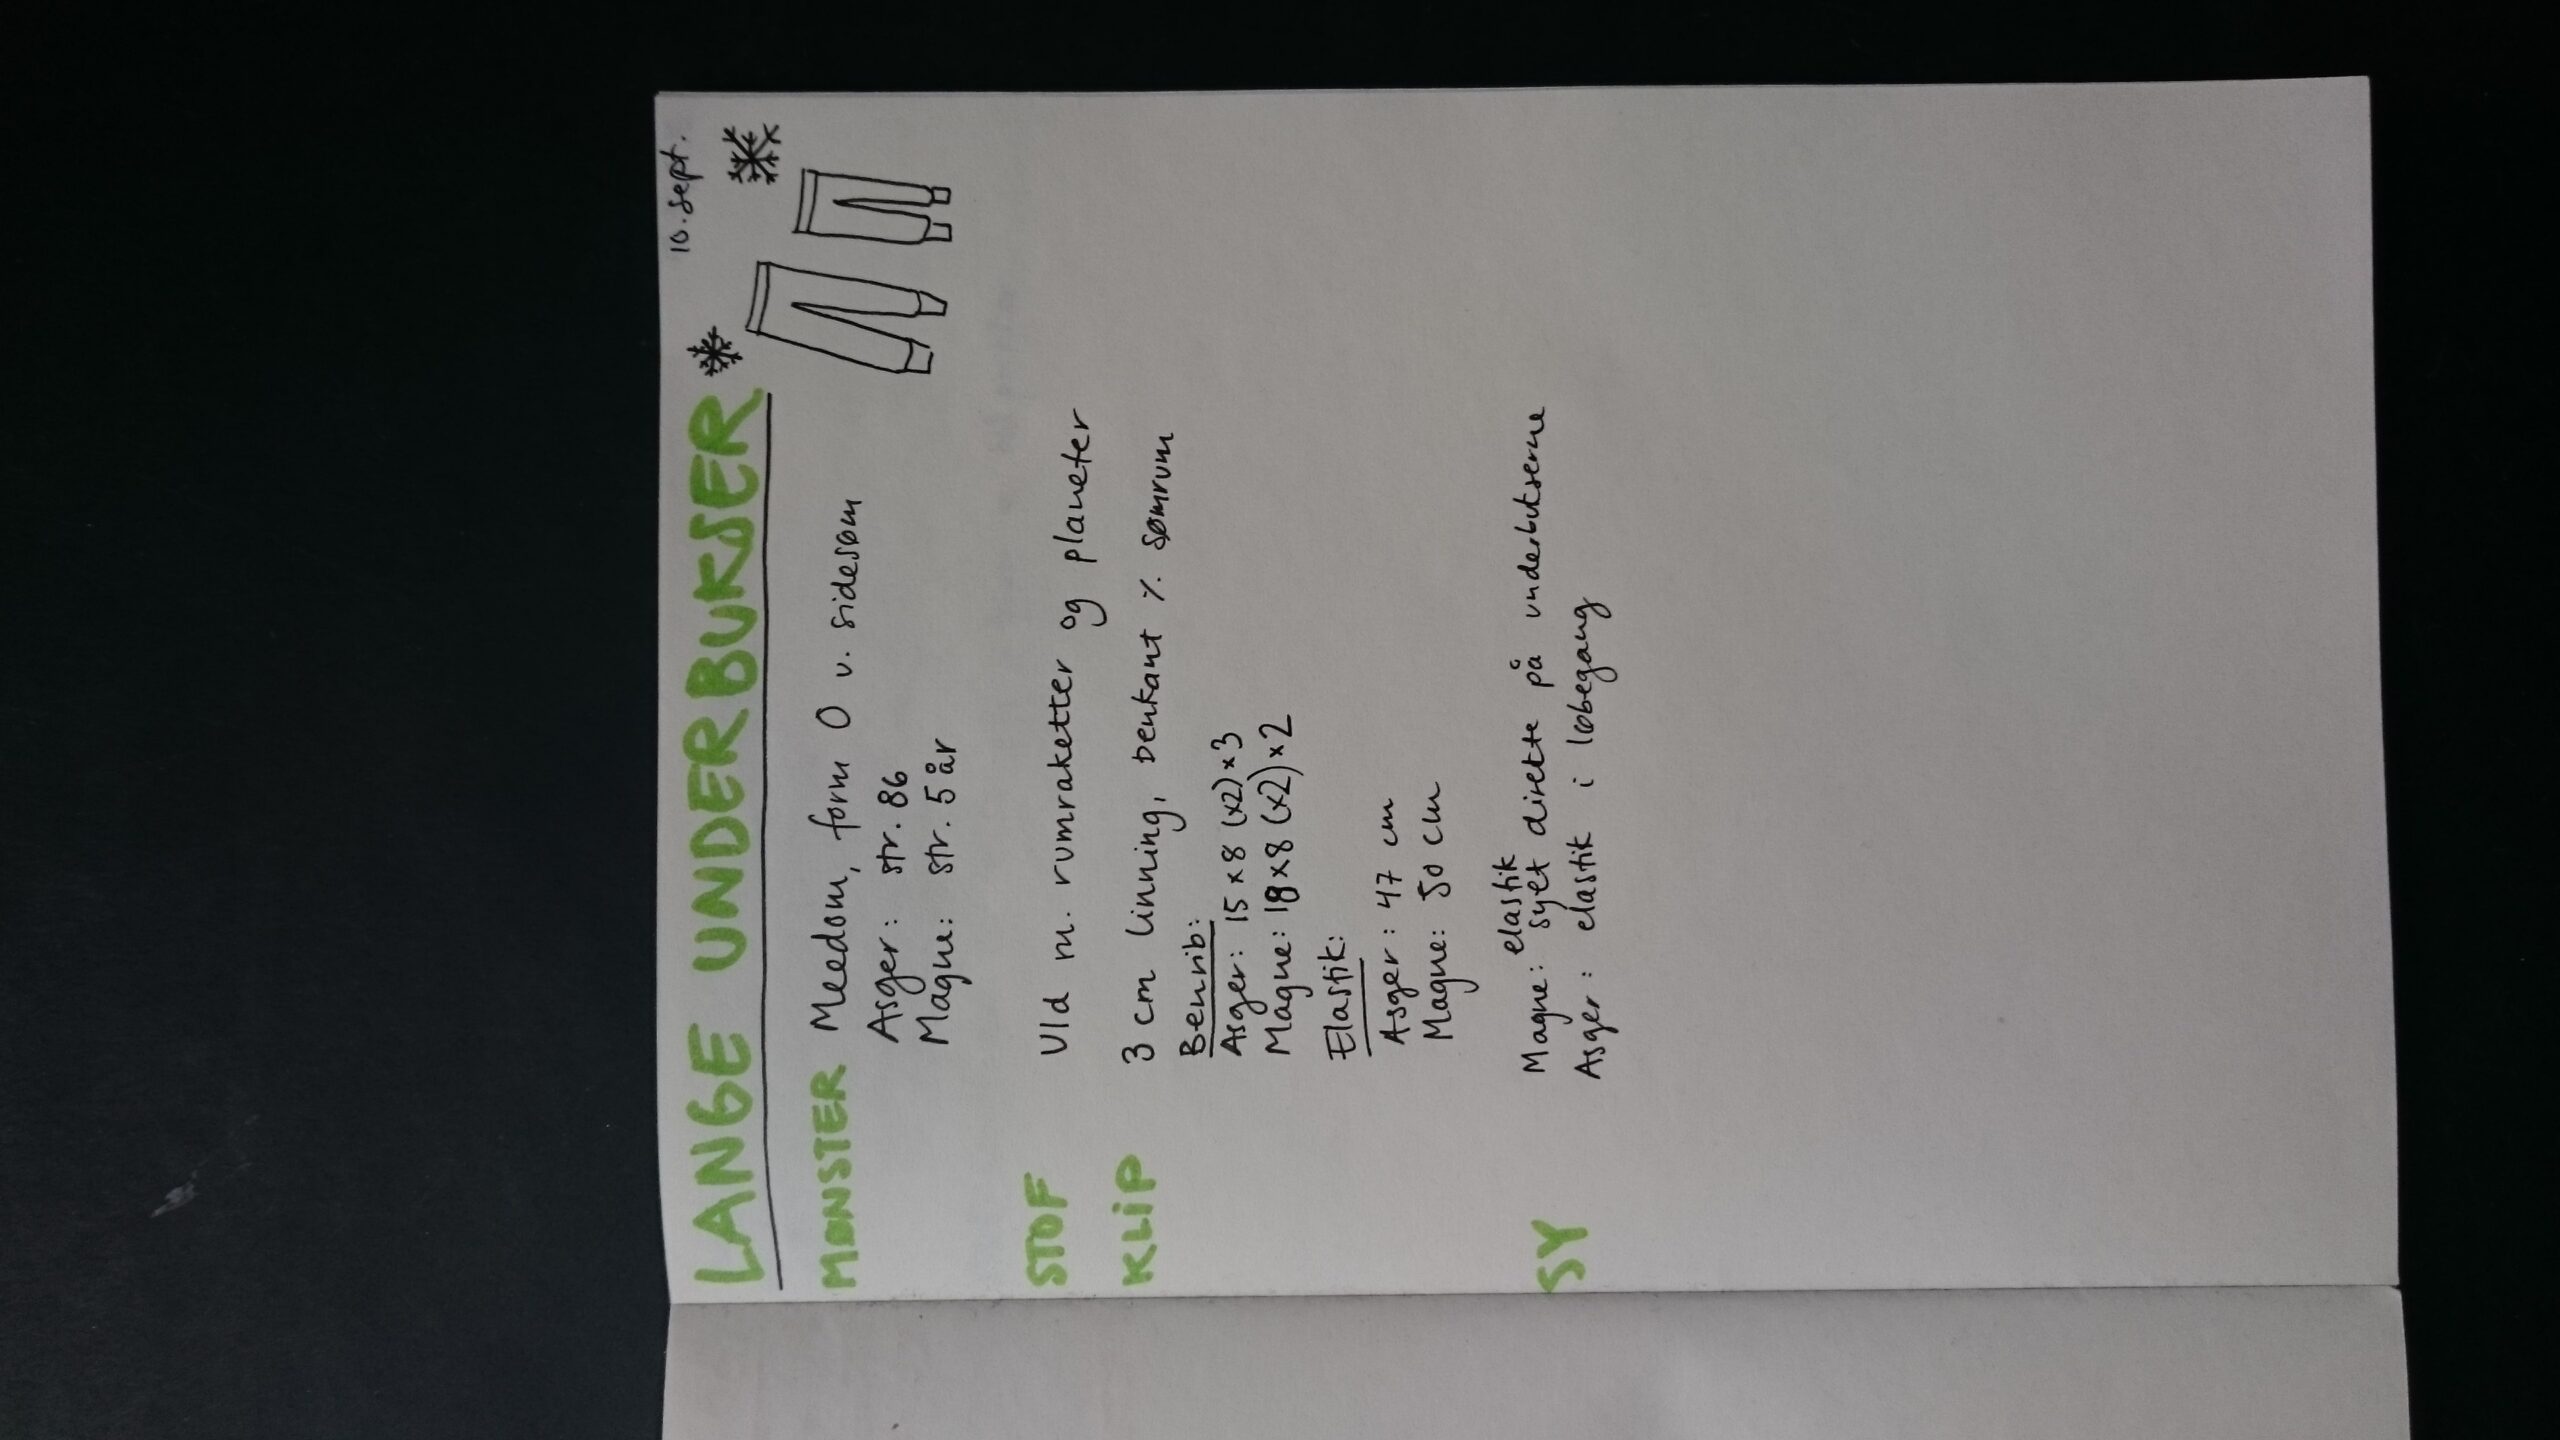 10. sept.
LANGE UNDERBUKSER
MØNSTER Meedom, form 0 v. sidesøm
Asger: str. 86
Magne: str. 5 år
STOF Uld m. rumraketter og planeter
KLIP 3 cm linning, benkant ٪ sømrum
Benrib:
Asger: 15 x 8 (x2) x 3
Magne: 18 x 8 (x2) x 2
Elastik:
Asger: 47 cm
Magne: 50 cm
SY Magne: elastik syet direkte på underbukserne
Asger: elastik i løbegang